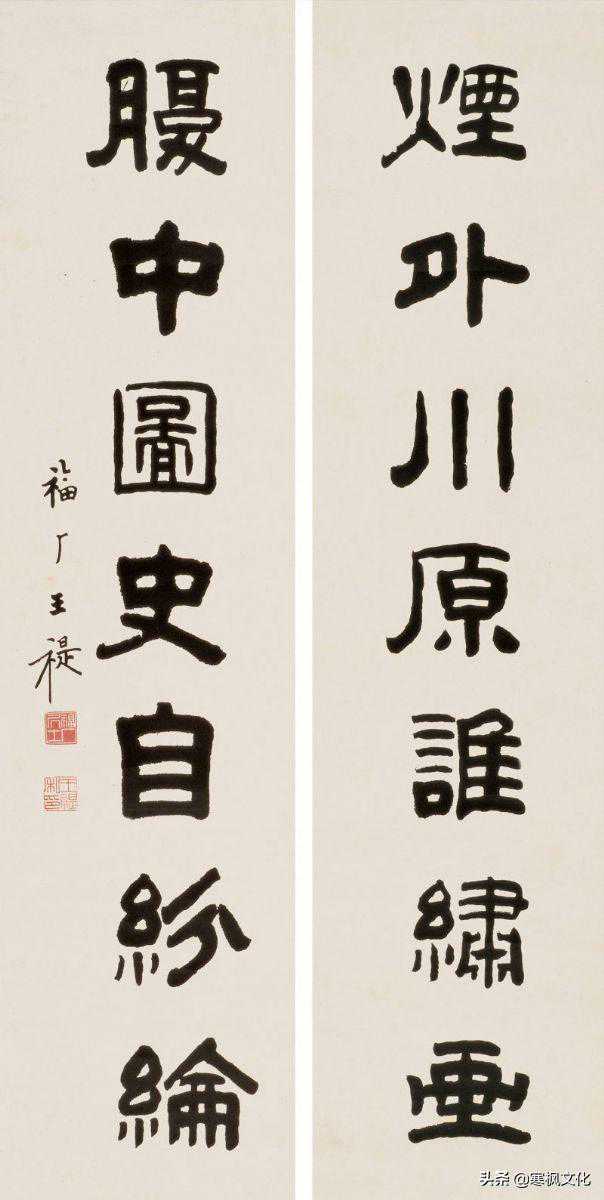 煙外川原誰繡画
腹中圖史自紛綸
福厂王禔
王禔私印
头条 @寒枫文化